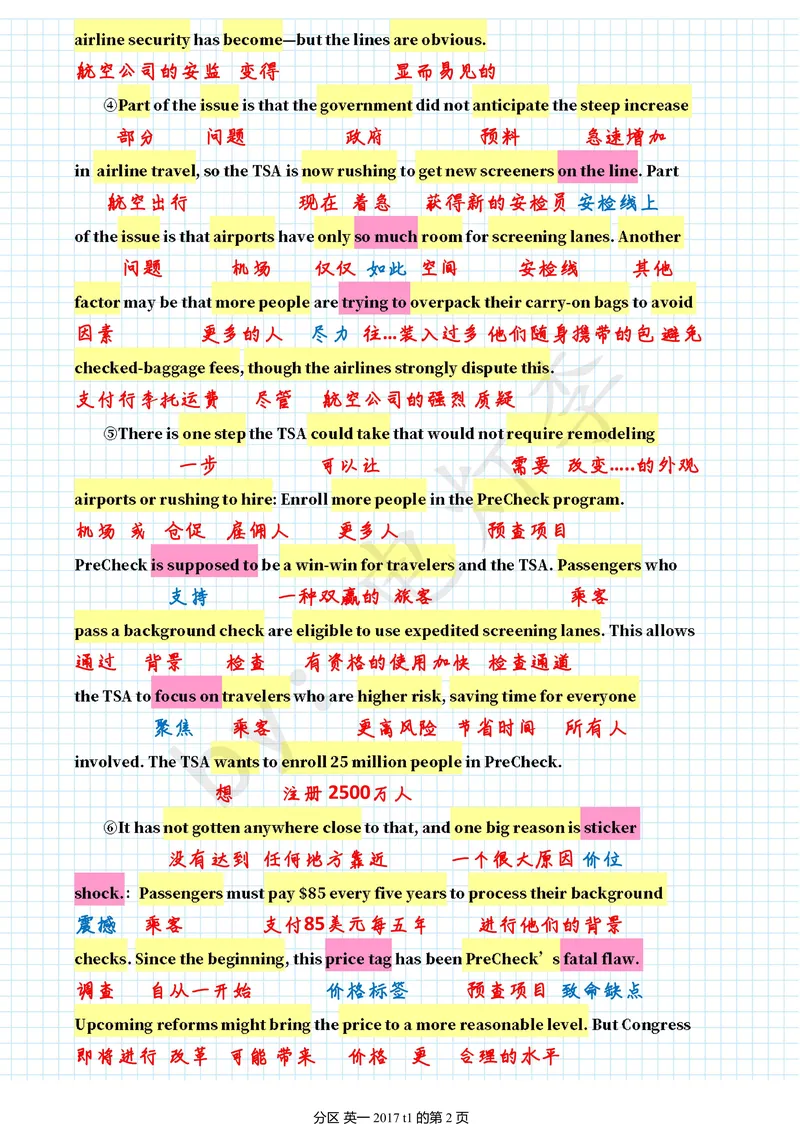 airline security has become—but the lines are obvious.
航空公司的安监 变得 显而易见的
④Part of the issue is that the government did not anticipate the steep increase
部分 问题 政府 预料 急速增加
in airline travel, so the TSA is now rushing to get new screeners on the line. Part
航空出行 现在 着急 获得新的安检员 安检线上
of the issue is that airports have only so much room for screening lanes. Another
问题 机场 仅仅 如此 空间 安检线 其他
factor may be that more people are trying to overpack their carry-on bags to avoid
因素 更多的人 尽力 往...装入过多 他们随身携带的包 避免
checked-baggage fees, though the airlines strongly dispute this.
支付行李托运费 尽管 航空公司的强烈 质疑
⑤There is one step the TSA could take that would not require remodeling
一步 可以让 需要 改变.....的外观
airports or rushing to hire: Enroll more people in the PreCheck program.
机场 或 仓促 雇佣人 更多人 预查项目
PreCheck is supposed to be a win-win for travelers and the TSA. Passengers who
支持 一种双赢的 旅客 乘客
pass a background check are eligible to use expedited screening lanes. This allows
通过 背景 检查 有资格的使用加快 检查通道
the TSA to focus on travelers who are higher risk, saving time for everyone
聚焦 乘客 更高风险 节省时间 所有人
involved. The TSA wants to enroll 25 million people in PreCheck.
想 注册 2500万人
⑥It has not gotten anywhere close to that, and one big reason is sticker
没有达到 任何地方靠近 一个很大原因 价位
shock.: Passengers must pay $85 every five years to process their background
震撼 乘客 支付85美元每五年 进行他们的背景
checks. Since the beginning, this price tag has been PreCheck’s fatal flaw.
调查 自从一开始 价格标签 预查项目 致命缺点
Upcoming reforms might bring the price to a more reasonable level. But Congress
即将进行 改革 可能 带来 价格 更 合理的水平
by: 电灯李
分区 英一 2017 t1 的第 2 页